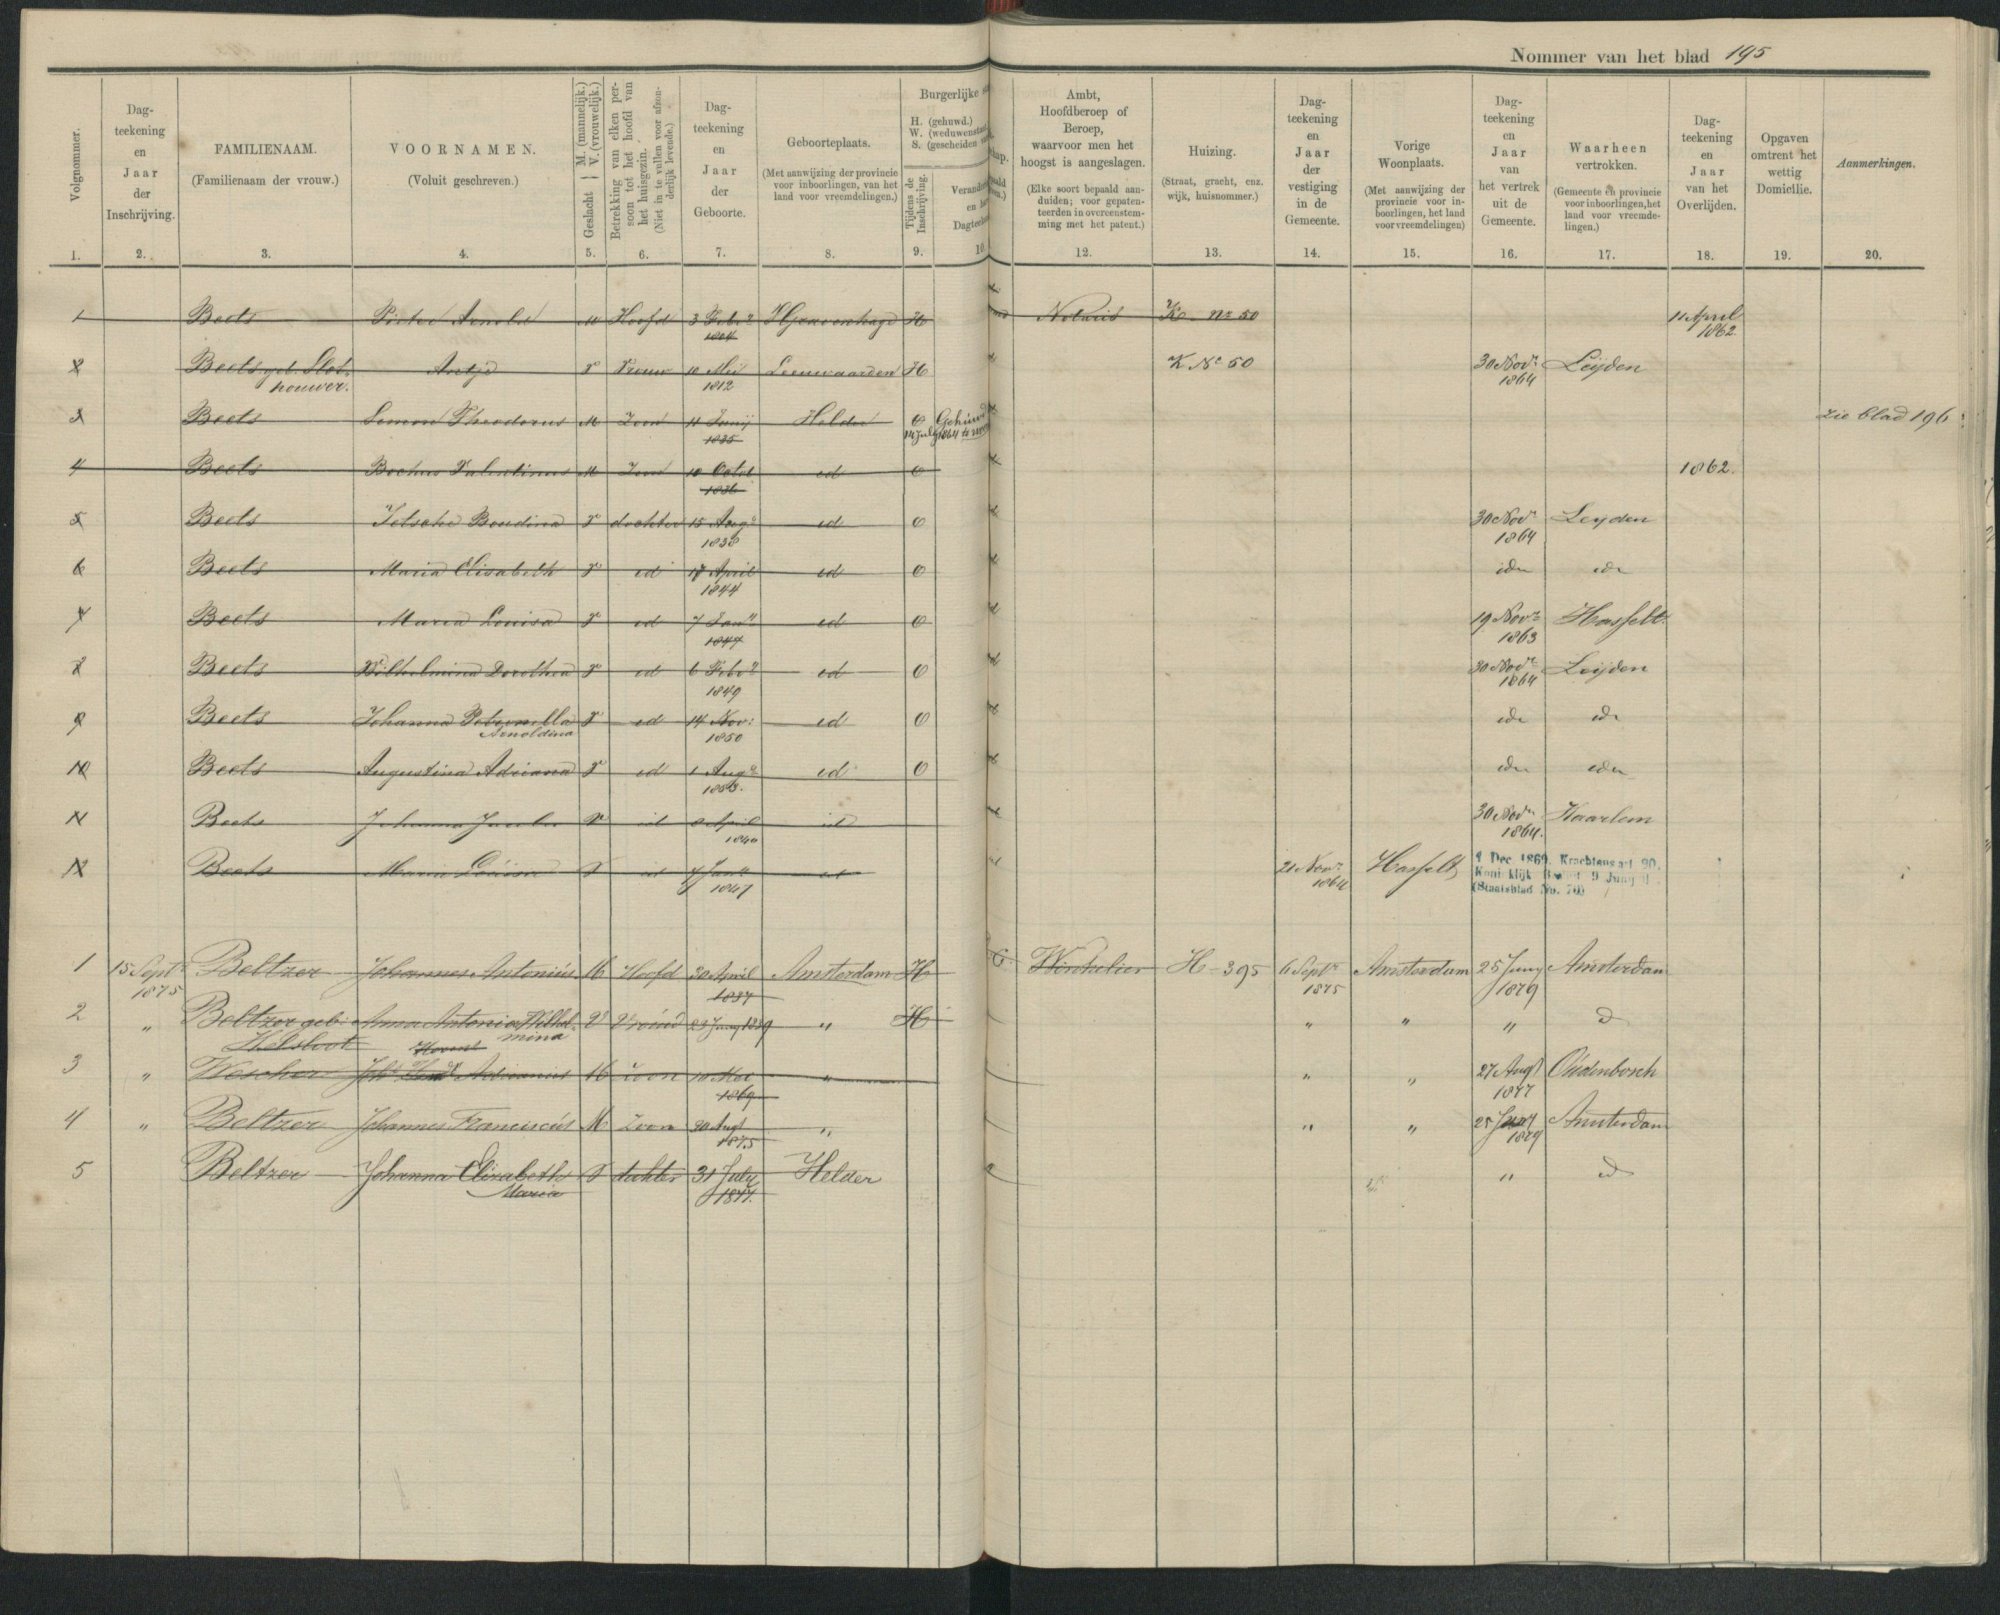 Nommer van het blad 195
Volgnommer.
Dag-
teekening
en
Jaar
der
Inschrijving.
FAMILIENAAM.
(Familienaam der vrouw.)
VOORNAMEN.
(Voluit geschreven.)
Geslacht { M. (mannelijk.) V. (vrouwelijk.)
Betrekking van elken per-
soon tot het hoofd van
het huisgezin.
(Niet in te vullen voor afzon-
derlijk levende.)
Dag-
teekening
en
Jaar
der
Geboorte.
Geboorteplaats.
(Met aanwijzing der provincie
voor inboorlingen, van het
land voor vreemdelingen.)
Burgerlijke
H. (gehuwd.)
W. (weduwenstaat
S. (gescheiden
Tijdens de
Inschrijving.
Ambt,
Hoofdberoep of
Beroep,
waarvoor men het
hoogst is aangeslagen.
(Elke soort bepaald aan-
duiden; voor gepaten-
teerden in overeenstem-
ming met het patent.)
Huizing.
(Straat, gracht, enz.
wijk, huisnommer.)
Dag-
teekening
en
Jaar
der
vestiging
in de
Gemeente.
Vorige
Woonplaats.
(Met aanwijzing der
provincie voor in-
boorlingen, het land
voor vreemdelingen)
Dag-
teekening
en
Jaar
van
het vertrek
uit de
Gemeente.
Waarheen
vertrokken.
(Gemeente en provincie
voor inboorlingen, het
land voor vreemde-
lingen.)
Dag-
teekening
en
Jaar
van het
Overlijden.
Opgaven
omtrent het
wettig
Domicilie.
Aanmerkingen.
1. 2. 3. 4. 5. 6. 7. 8. 9. 10 12. 13. 14. 15. 16. 17. 18. 19. 20.
1 Beets Pieter Arnold M Hoofd 3 Febr 1804 'sGravenhage H Notaris K No 50 11 April 1862
2 Beets geb. Slot-houwer. Antje V Vrouw 10 Mei 1812 Leeuwaarden H K No 50 30 Novr 1864 Leijden
3 Beets Simon Theodorus M Zoon 11 Junij 1835 Helder O 14 July 1864 zie blad 196
4 Beets Valentinus M Zoon 10 Octob 1836 id O 1862.
5 Beets Jetsche Boudina V dochter 15 Aug 1838 id O 30 Novr 1864 Leyden
6 Beets Maria Elisabeth V id 17 April 1844 id O idr idr
7 Beets Maria Louisa V id 7 Jan 1847 id O 19 Novr 1863 Hasselt.
8 Beets Wilhelmina Dorothea V id 6 Febr 1849 id O 30 Novr 1864 Leijden
9 Beets Johanna Petronella Arnoldina V id 14 Nov: 1850 id O idr idr
10 Beets Augustina Adriana V id 1 Aug 1853. id O idr idr
11 Beets Johanna Jacoba V id April 1840 id 30 Novr 1864. Haarlem
12 Beets Maria Louisa V id 7 Jan 1847 id 21 Novr 1864 Hasselt 1 Dec. 1869. Krachtens art 20.
Koninklijk Besluit 9 Junij
(Staatsblad No. 70)
1 15 Sept 1875 Beltzer Johannes Antonius M Hoofd 30 April 1837 Amsterdam H Winkelier H 395 6 Septr 1875 Amsterdam 25 Juny 1879 Amsterdam
2 " Beltzer geb: Helsloot Anna Antonia Wilhelmina V Vrouw 29 Juny 1839 " H " " " d
3 " Wescher Adrianus M zoon 10 Mei 1869 " " " 27 Augt 1877 Oudenbosch
4 " Beltzer Johannes Franciscus M Zoon 20 Augt 1875 " " " 25 Juny 1879 Amsterdam
5 Beltzer Johanna Elizabeth Maria V dochter 31 July 1877. Helder " d